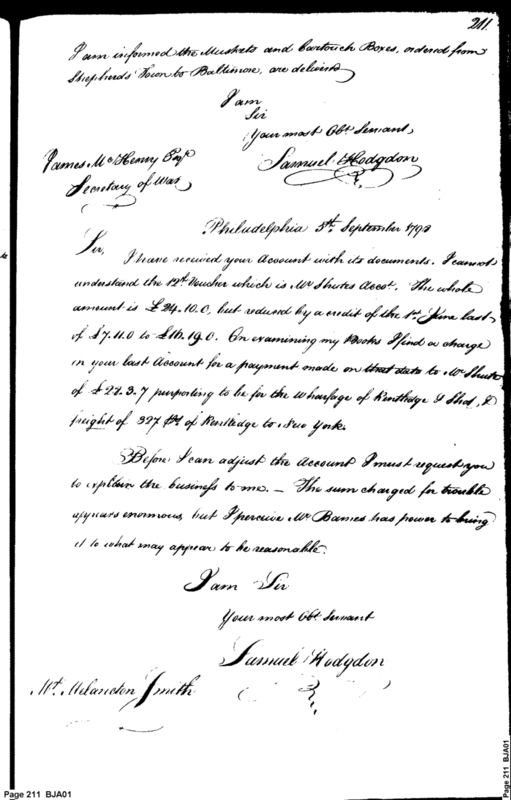 211.
I am informed the Muskets and Cartouch Boxes, ordered from
Shepherds Town to Baltimore, are delivered
I am
Sir
Your most Obt. Servant
James McHenry Esqr.
Samuel Hodgdon
Secretary of War
Philadelphia 5th. September 1798
Sir,
I have received your Account with its documents. I cannot
understand the 12th Voucher which is Mr Shutes Accot. The whole
amount is £24.10.0, but reduced by a credit of the 1st. June last
of £7.11.0 to £16.19.0. On examining my Books I find a charge
in your last Account for a payment made on that date to Mr Shute
of £22.3.7 purporting to be for the wharfage of Kentledge & Shot, &
freight of 327 of Kentledge to New York.
Before I can adjust the Account I must request you
to explain the business to me. – The sum charged for trouble
appears enormous, but I perceive Mr Barnes has power to bring
it to what may appear to be reasonable.
I am Sir
Your most Obt Servant
Samuel Hodgdon
Mr. Melancton Smith
Page 211 BJA01
Page 211 BJA01